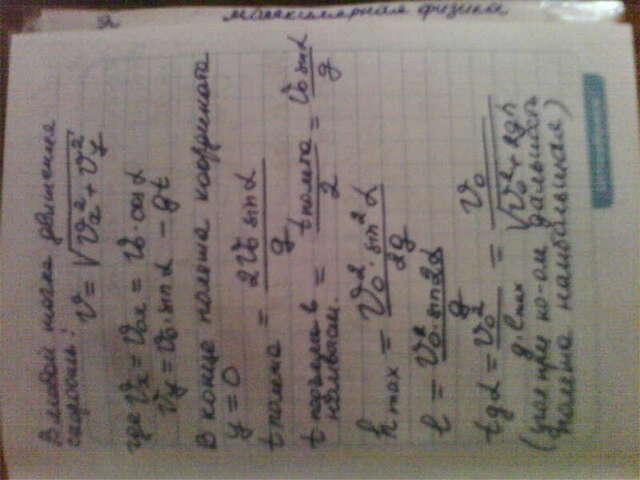 молекулярная физика
В любой точке движения
скорость:
v = √(vₓ² + v_y²)
где vₓ = v₀ₓ = v₀·cosα
v_y = v₀·sinα - gt
В конце полета координата
y = 0
t полета = 2v₀ sinα / g
t подъема в наивысш. = t полета / 2 = v₀ sinα / g
h max = v₀²·sin²α / 2g
l = v₀²·sin2α / g
tgα = v₀² / g·l max = v₀ / √(v₀² + 2gh)
(угол при ко-ом дальность
полета наибольшая)